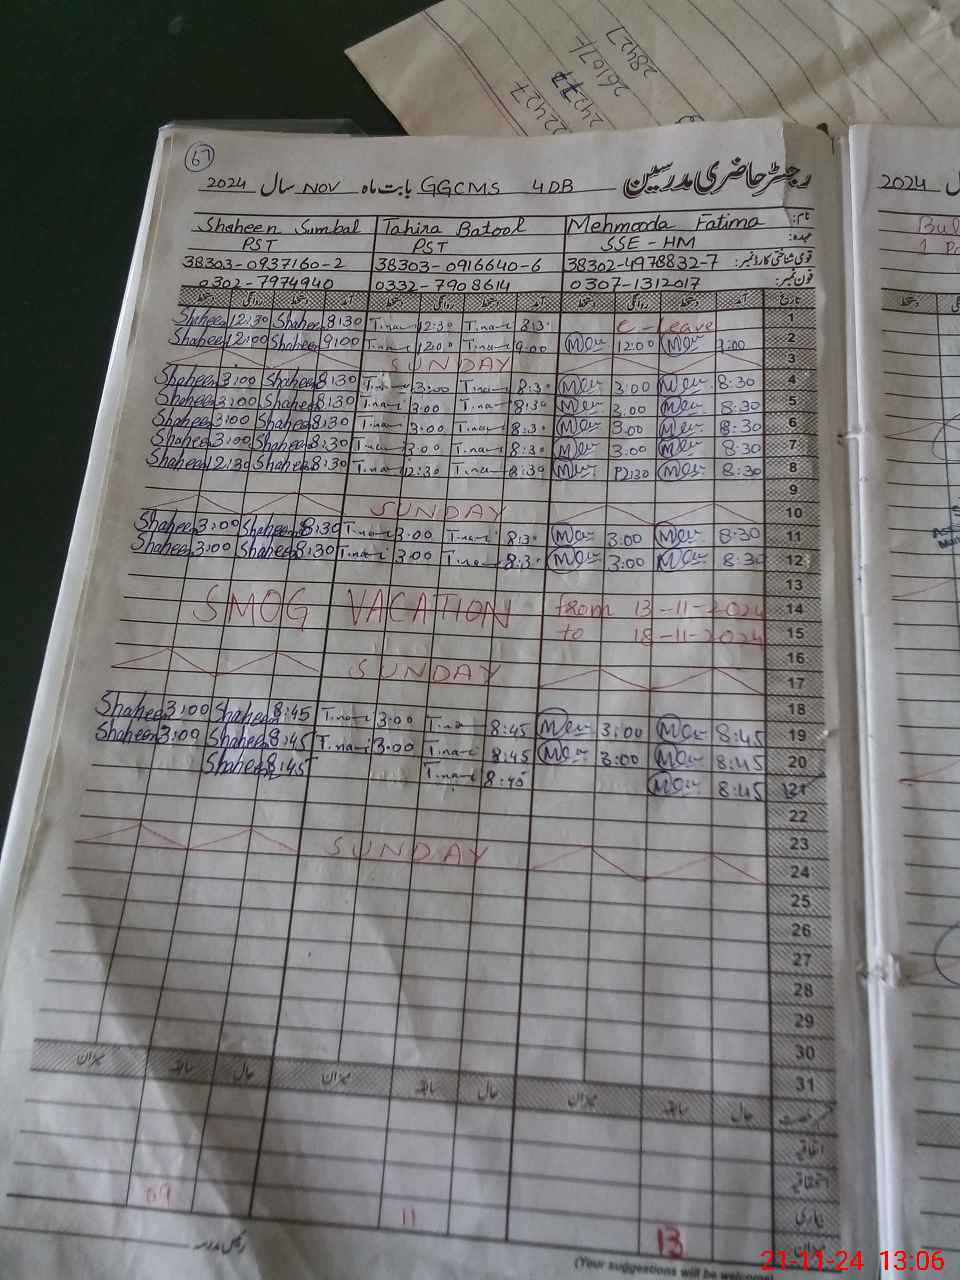 28427
26107
2427
22427
67
رجسٹر حاضری مدرسین GGCMS 4DB بابت ماہ NOV سال 2024
2024
نام: Mehmooda Fatima Tahira Batool Shaheen Sumbal
عہدہ: SSE - HM PST PST
قومی شناختی کارڈ نمبر: 38302-4978832-7 38303-0916640-6 38303-0937160-2
فون نمبر: 0307-1312017 0332-7908614 0302-7974940
تاریخ آمد دستخط روانگی دستخط آمد دستخط روانگی دستخط
1 C-Leave 8:3 Tina 12:30 Tina 8:30 Shaheen 12:30 Shaheen
2 9:00 Mew 12:00 Mew 9:00 Tina 12:00 Tina 9:00 Shaheen 12:00 Shaheen
3 SUNDAY
4 8:30 Mew 3:00 Mew 8:30 Tina 3:00 Tina 8:30 Shaheen 3:00 Shaheen
5 8:30 Mew 3:00 Mew 8:30 Tina 3:00 Tina 8:30 Shaheen 3:00 Shaheen
6 8:30 Mew 3:00 Mew 8:30 Tina 3:00 Tina 8:30 Shaheen 3:00 Shaheen
7 8:30 Mew 3:00 Mew 8:30 Tina 3:00 Tina 8:30 Shaheen 3:00 Shaheen
8 8:30 Mew 12:30 Mew 8:30 Tina 12:30 Tina 8:30 Shaheen 12:30 Shaheen
9
10 SUNDAY
11 8:30 Mew 3:00 Mew 8:30 Tina 3:00 Tina 8:30 Shaheen 3:00 Shaheen
12 8:30 Mew 3:00 Mew 8:30 Tina 3:00 Tina 8:30 Shaheen 3:00 Shaheen
13
14 SMOG VACATION from 13-11-2024
15 to 18-11-2024
16
17 SUNDAY
18
19 8:45 Mew 3:00 Mew 8:45 Tina 3:00 Tina 8:45 Shaheen 3:00 Shaheen
20 8:45 Mew 3:00 Mew 8:45 Tina 3:00 Tina 8:45 Shaheen 3:00 Shaheen
21 8:45 Mew 8:45 Tina 8:45 Shaheen
22
23
24 SUNDAY
25
26
27
28
29
30
31
حال سابقہ میزان حال سابقہ میزان حال سابقہ میزان
اتفاقیہ
استحقاقیہ
بیماری
میزان 13 11 09
رئیس مدرسہ
(Your suggestions will be welcome)
21-11-24 13:06